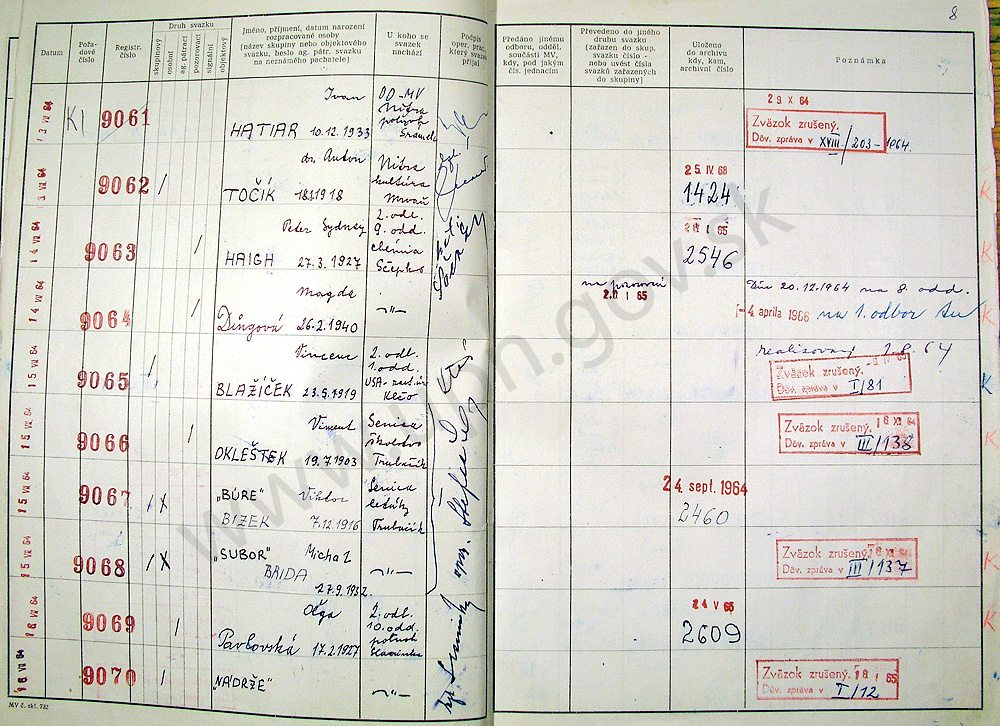 8
Datum
Pořadové číslo
Registr. číslo
Druh svazku
skupinový
osobní
ag. pátrací
pozorovací
signální
objektový
Jméno, příjmení, datum narození
rozpracované osoby
(název skupiny nebo objektového
svazku, heslo ag. pátr. svazku
na neznámého pachatele)
U koho se
svazek
nachází
Podpis
oper. prac.
který svazek
přijal
Předáno jinému
odboru, odděl.
součásti MV
kdy, pod jakým
čís. jednacím
Převedeno do jiného
druhu svazku
(zařazen do skup.
svazku číslo -
nebo uvést čísla
svazků zařazených
do skupiny)
Uloženo
do archivu
kdy, kam,
archivní číslo
Poznámka
13 VII 64 K1 9061
Ivan
HATIAR 10.12.1933
OO-MV
Nitra
Sramek
29 X 64
Zväzok zrušený.
Dôv. zpráva v XVIII/203-1964.
13 VII 64 9062 /
dr. Anton
TOČÍK 1918
Nitra
kultúra
25 IV 68
1424
K
14 VII 64 9063 /
Peter Sydney
HAIGH 27.3.1927
2. odd.
9. odd.
chémia
Sčepko
I 65
2546
K
14 VII 64 9064 /
Magda
Dingová 26.2.1940
—"—
na pozorovací
I 65
Dňa 20.12.1964 na 8. odd.
4. apríla 1966 na 1. odbor
K
15 VII 64 9065 /
Vincenc
BLAŽÍČEK 23.5.1919
2. odd.
1. odd.
USA-
Kečo
realizovaný
Zväzok zrušený.
Dôv. zpráva v I/81
K
15 VII 64 9066 /
Vincent
OKLEŠTEK 19.7.1903
Senica
školstvo
Trubačík
Zväzok zrušený. 16 XII 64
Dôv. zpráva v III/138
K
15 VII 64 9067 / X
„BÚRE" Viktor
BIZEK 7.12.1916
Senica
letáky
Trubačík
24. sept. 1964
2460
K
15 VII 64 9068 / X
„SUBOR" Michal
BRIDA
27.9.1932.
—"—
Zväzok zrušený. 16 XII 64
Dôv. zpráva v III/137
K
16 VII 64 9069 /
Oľga
Pavlovská 17.2.1927
2. odd.
10. odd.
24 V 65
2609
K
16 VII 64 9070 /
„NÁDRŽE"
—"—
Zväzok zrušený. 18 I 65
Dôv. zpráva v I/12
MV č. skl. 782
www.upn.gov.sk